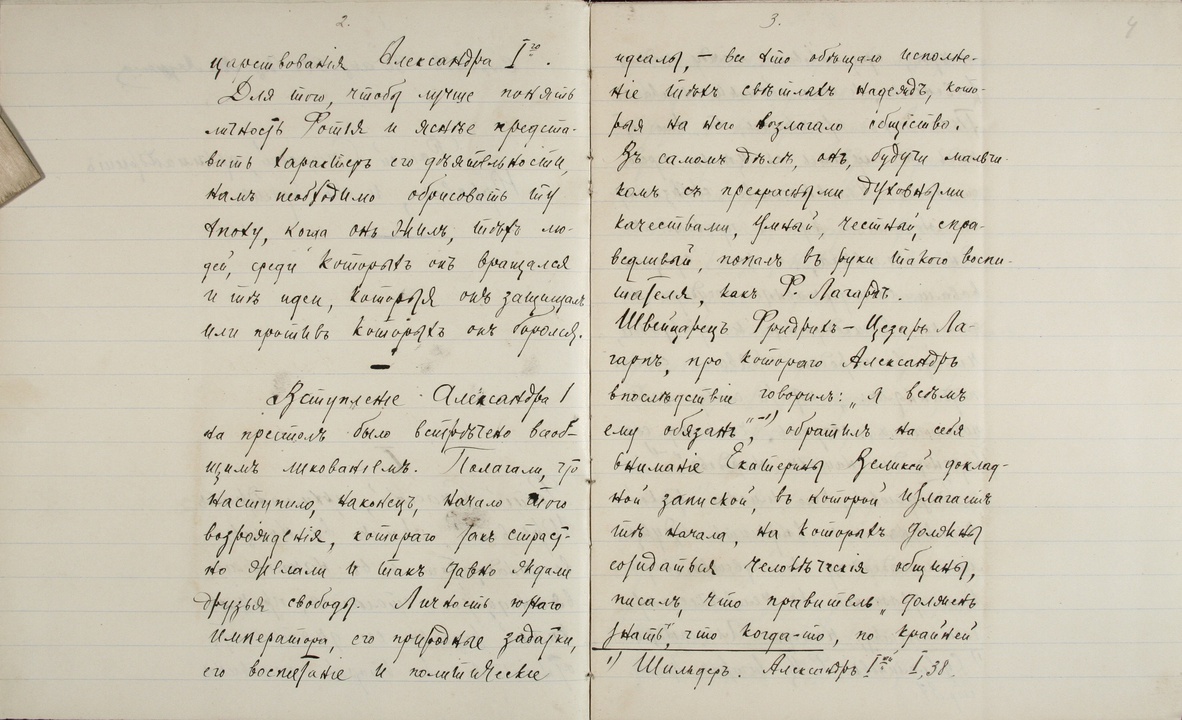 2.
царствованія Александра I го.
Для того, чтобы лучше понять
личность Фотія и яснѣе предста-
вить характеръ его дѣятельности,
намъ необходимо обрисовать ту
эпоху, когда онъ жилъ, тѣхъ лю-
дей, среди которыхъ онъ вращался
и тѣ идеи, которыя онъ защищалъ
или противъ которыхъ онъ боролся.
Вступленіе Александра I
на престолъ было встрѣчено всеоб-
щимъ ликованіемъ. Полагали, что
наступило, наконецъ, начало того
возрожденія, котораго такъ страст-
но желали и такъ давно ждали
друзья свободы. Личность юнаго
Императора, его природные задатки,
его воспитаніе и политическіе
3.
4
идеалы, — все это обѣщало исполне-
ніе тѣхъ свѣтлыхъ надеждъ, кото-
рыя на него возлагало общество.
Въ самомъ дѣлѣ, онъ, будучи мальчи-
комъ съ прекрасными духовными
качествами, умный, честный, спра-
ведливый, попалъ въ руки такого воспи-
тателя, какъ Ф. Лагарпъ.
Швейцарецъ Фридрихъ – Цезарь Ла-
гарпъ, про котораго Александръ
впослѣдствіе говорилъ: „я всѣмъ
ему обязанъ" –¹), обратилъ на себя
вниманіе Екатерины Великой доклад-
ной запиской, въ которой излагаетъ
тѣ начала, на которыхъ должны
созидаться человѣческія общины,
писалъ, что правитель „долженъ
знать", что когда-то, по крайней
¹) Шильдеръ. Александръ I ый I, 38.